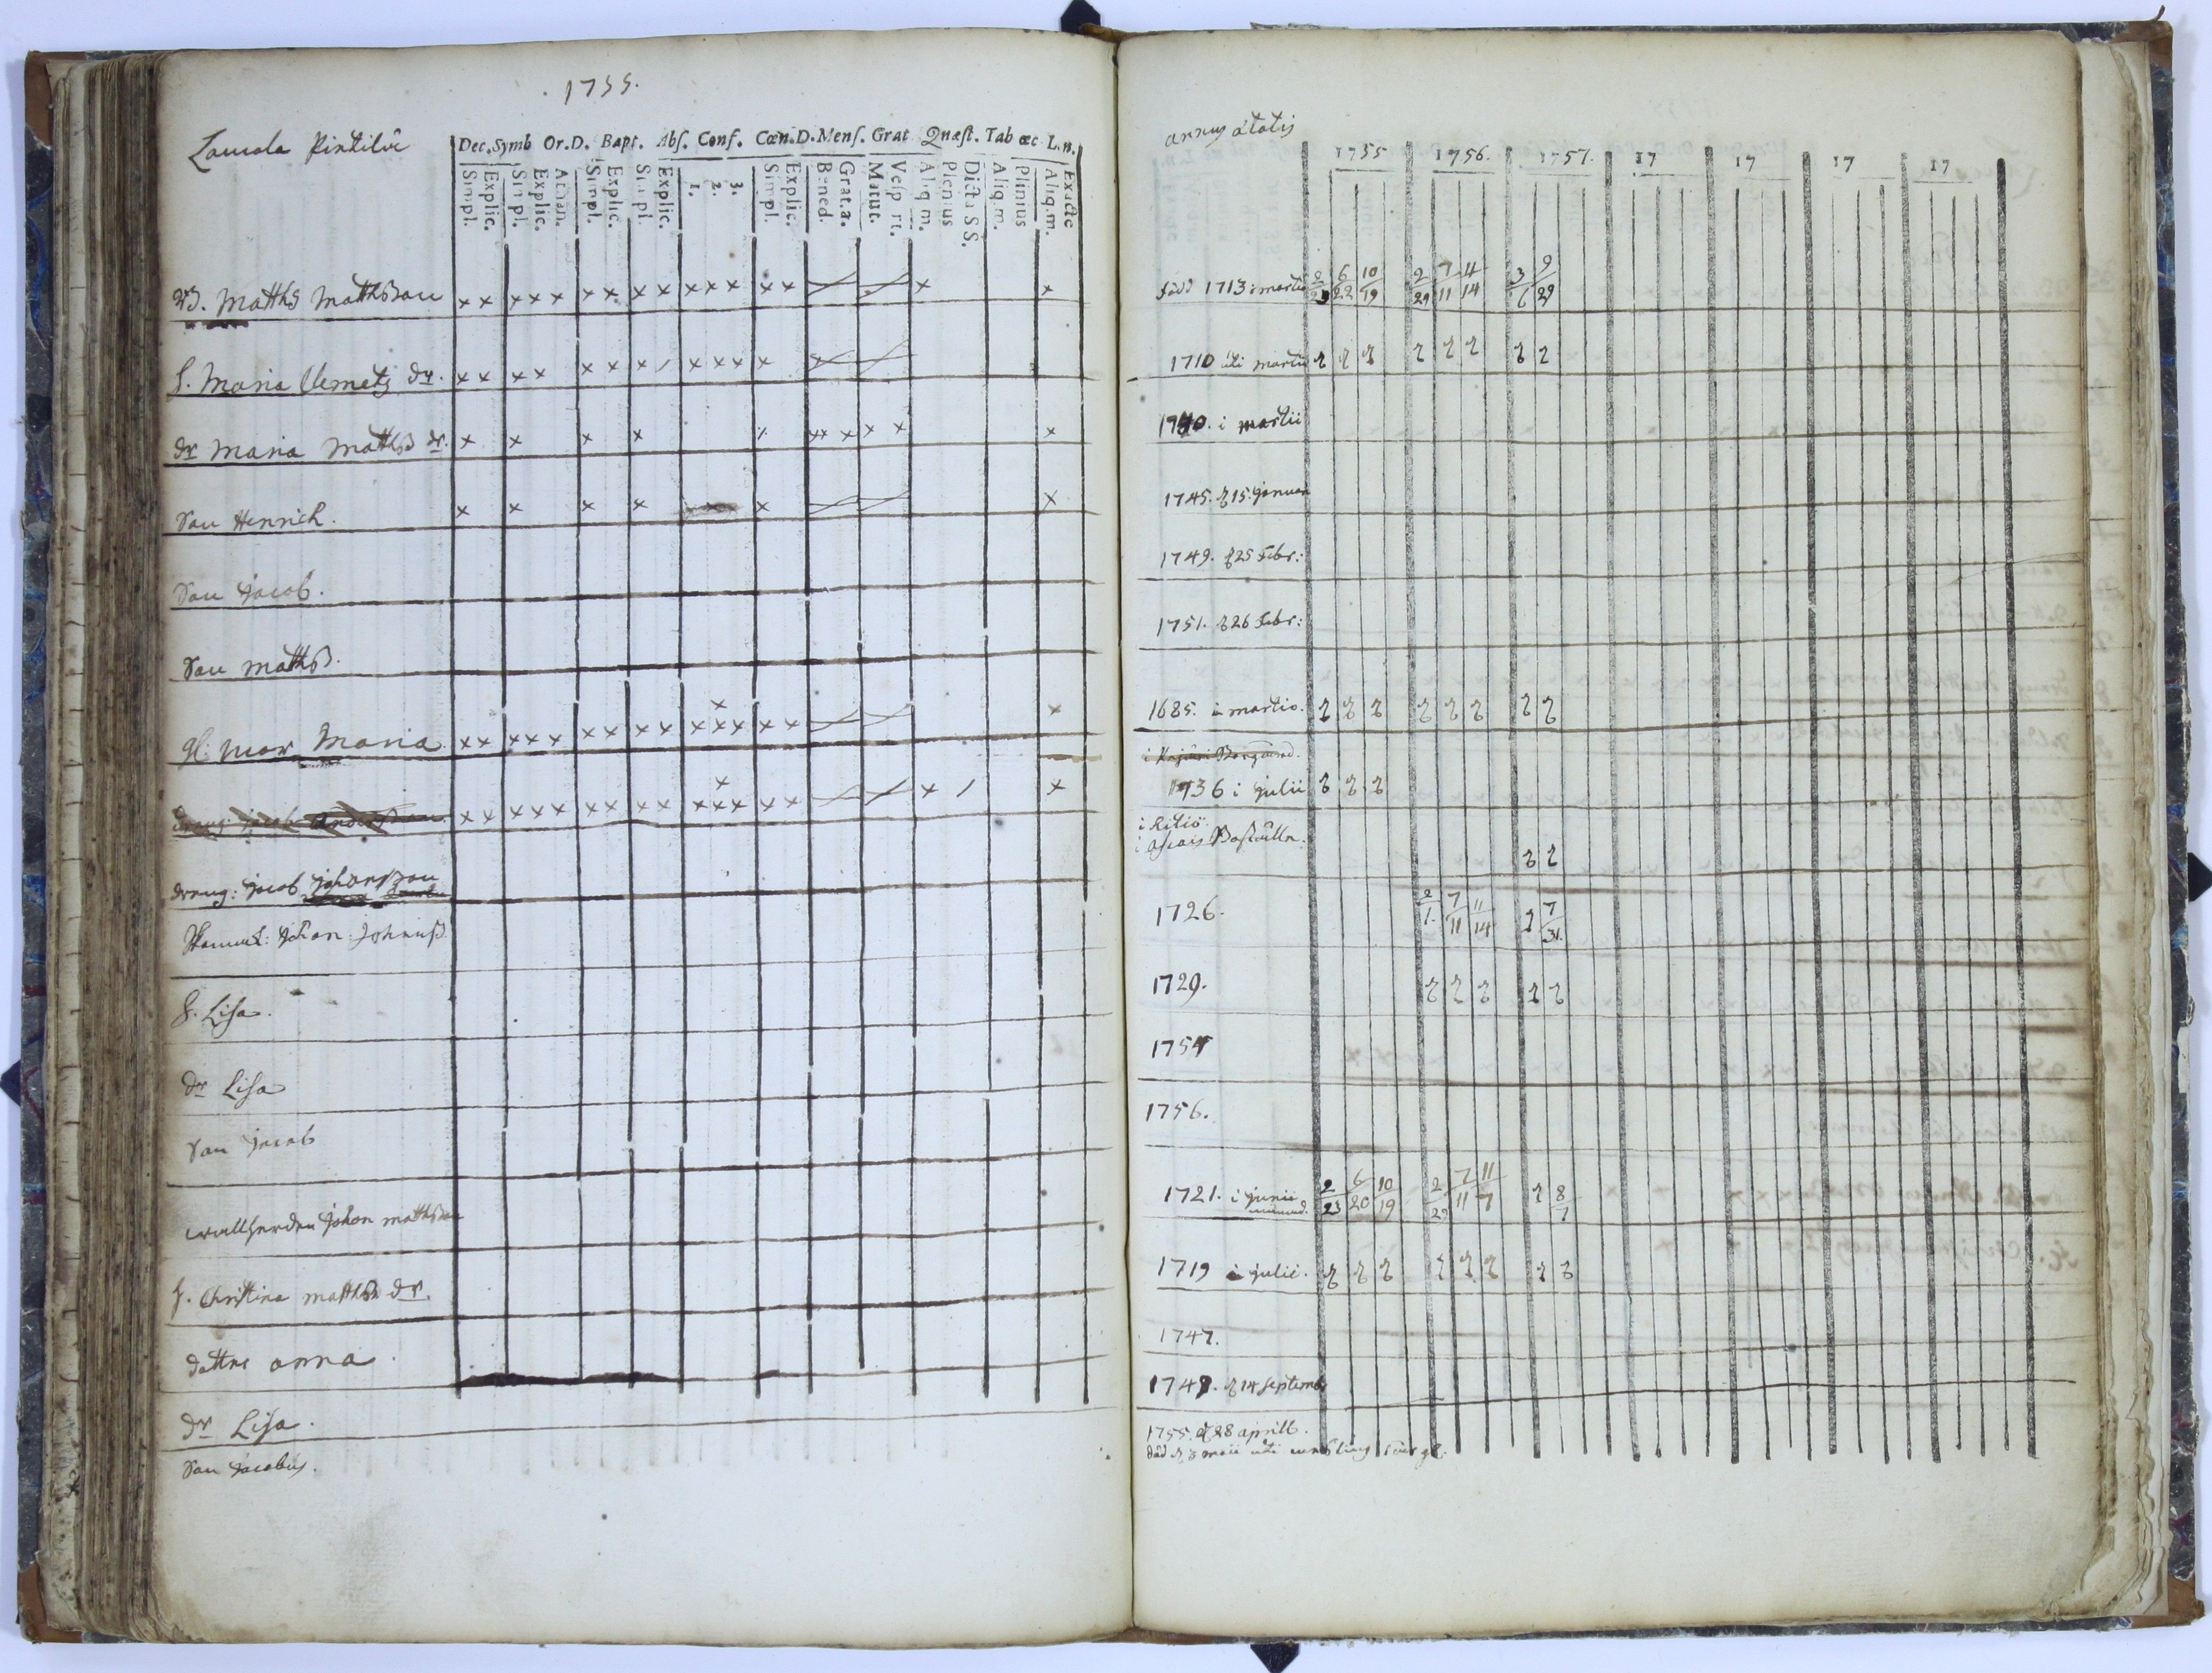 1755.
Lamala Pintilä
Dec. Symb Or.D. Bapt. Abs. Conf. Cœn.D. Mens. Grat Quæst. Tab œc L.n.
Simpl. Explic. Simpl. Explic. Athan. Simpl. Explic. Simpl. Explic. 1. 2. 3. Simpl. Explic. Bened. Grat.a. Matut. Vesp rt. Aliq.m. Plenius Dicta SS. Aliq.m. Plinius Aliq.m. Exacte
Matths Matthsson
h. Maria Clemetz dr.
dr Maria Matths dr.
Son Henrich.
Son Jacob.
Son Matths.
Gl: mor Maria
dreng: Jacob Andersson
dreng: Jacob Johansson
Johan Johanss
h. Lisa.
dr Lisa
Son Jacob
wallherden Johan Mattsson
h. Christina Matths dr.
dottre anna.
dr Lisa.
Son Jacobus.
annus ætatis
1755 1756. 1757. 17 17 17 17
född 1713 i martii 2/23 6/22 10/19 2/29 7/11 11/14 3/6 9/29
1710 uti martii
1740. i martii
1745. d 15. Januar
1749. d 25 Febr:
1751. d 26 Febr:
1685. in martio.
1736 i julii
1726. 2/1. 7/11 11/14 7/31.
1729.
1754
1756.
1721. i junii 2/23 6/20 10/19 2/29 7/11 11/7 8/7
1719 i julii.
1747.
1749. d 14 Septemb
1755. d 28 aprill.
död d. 3 maii uti